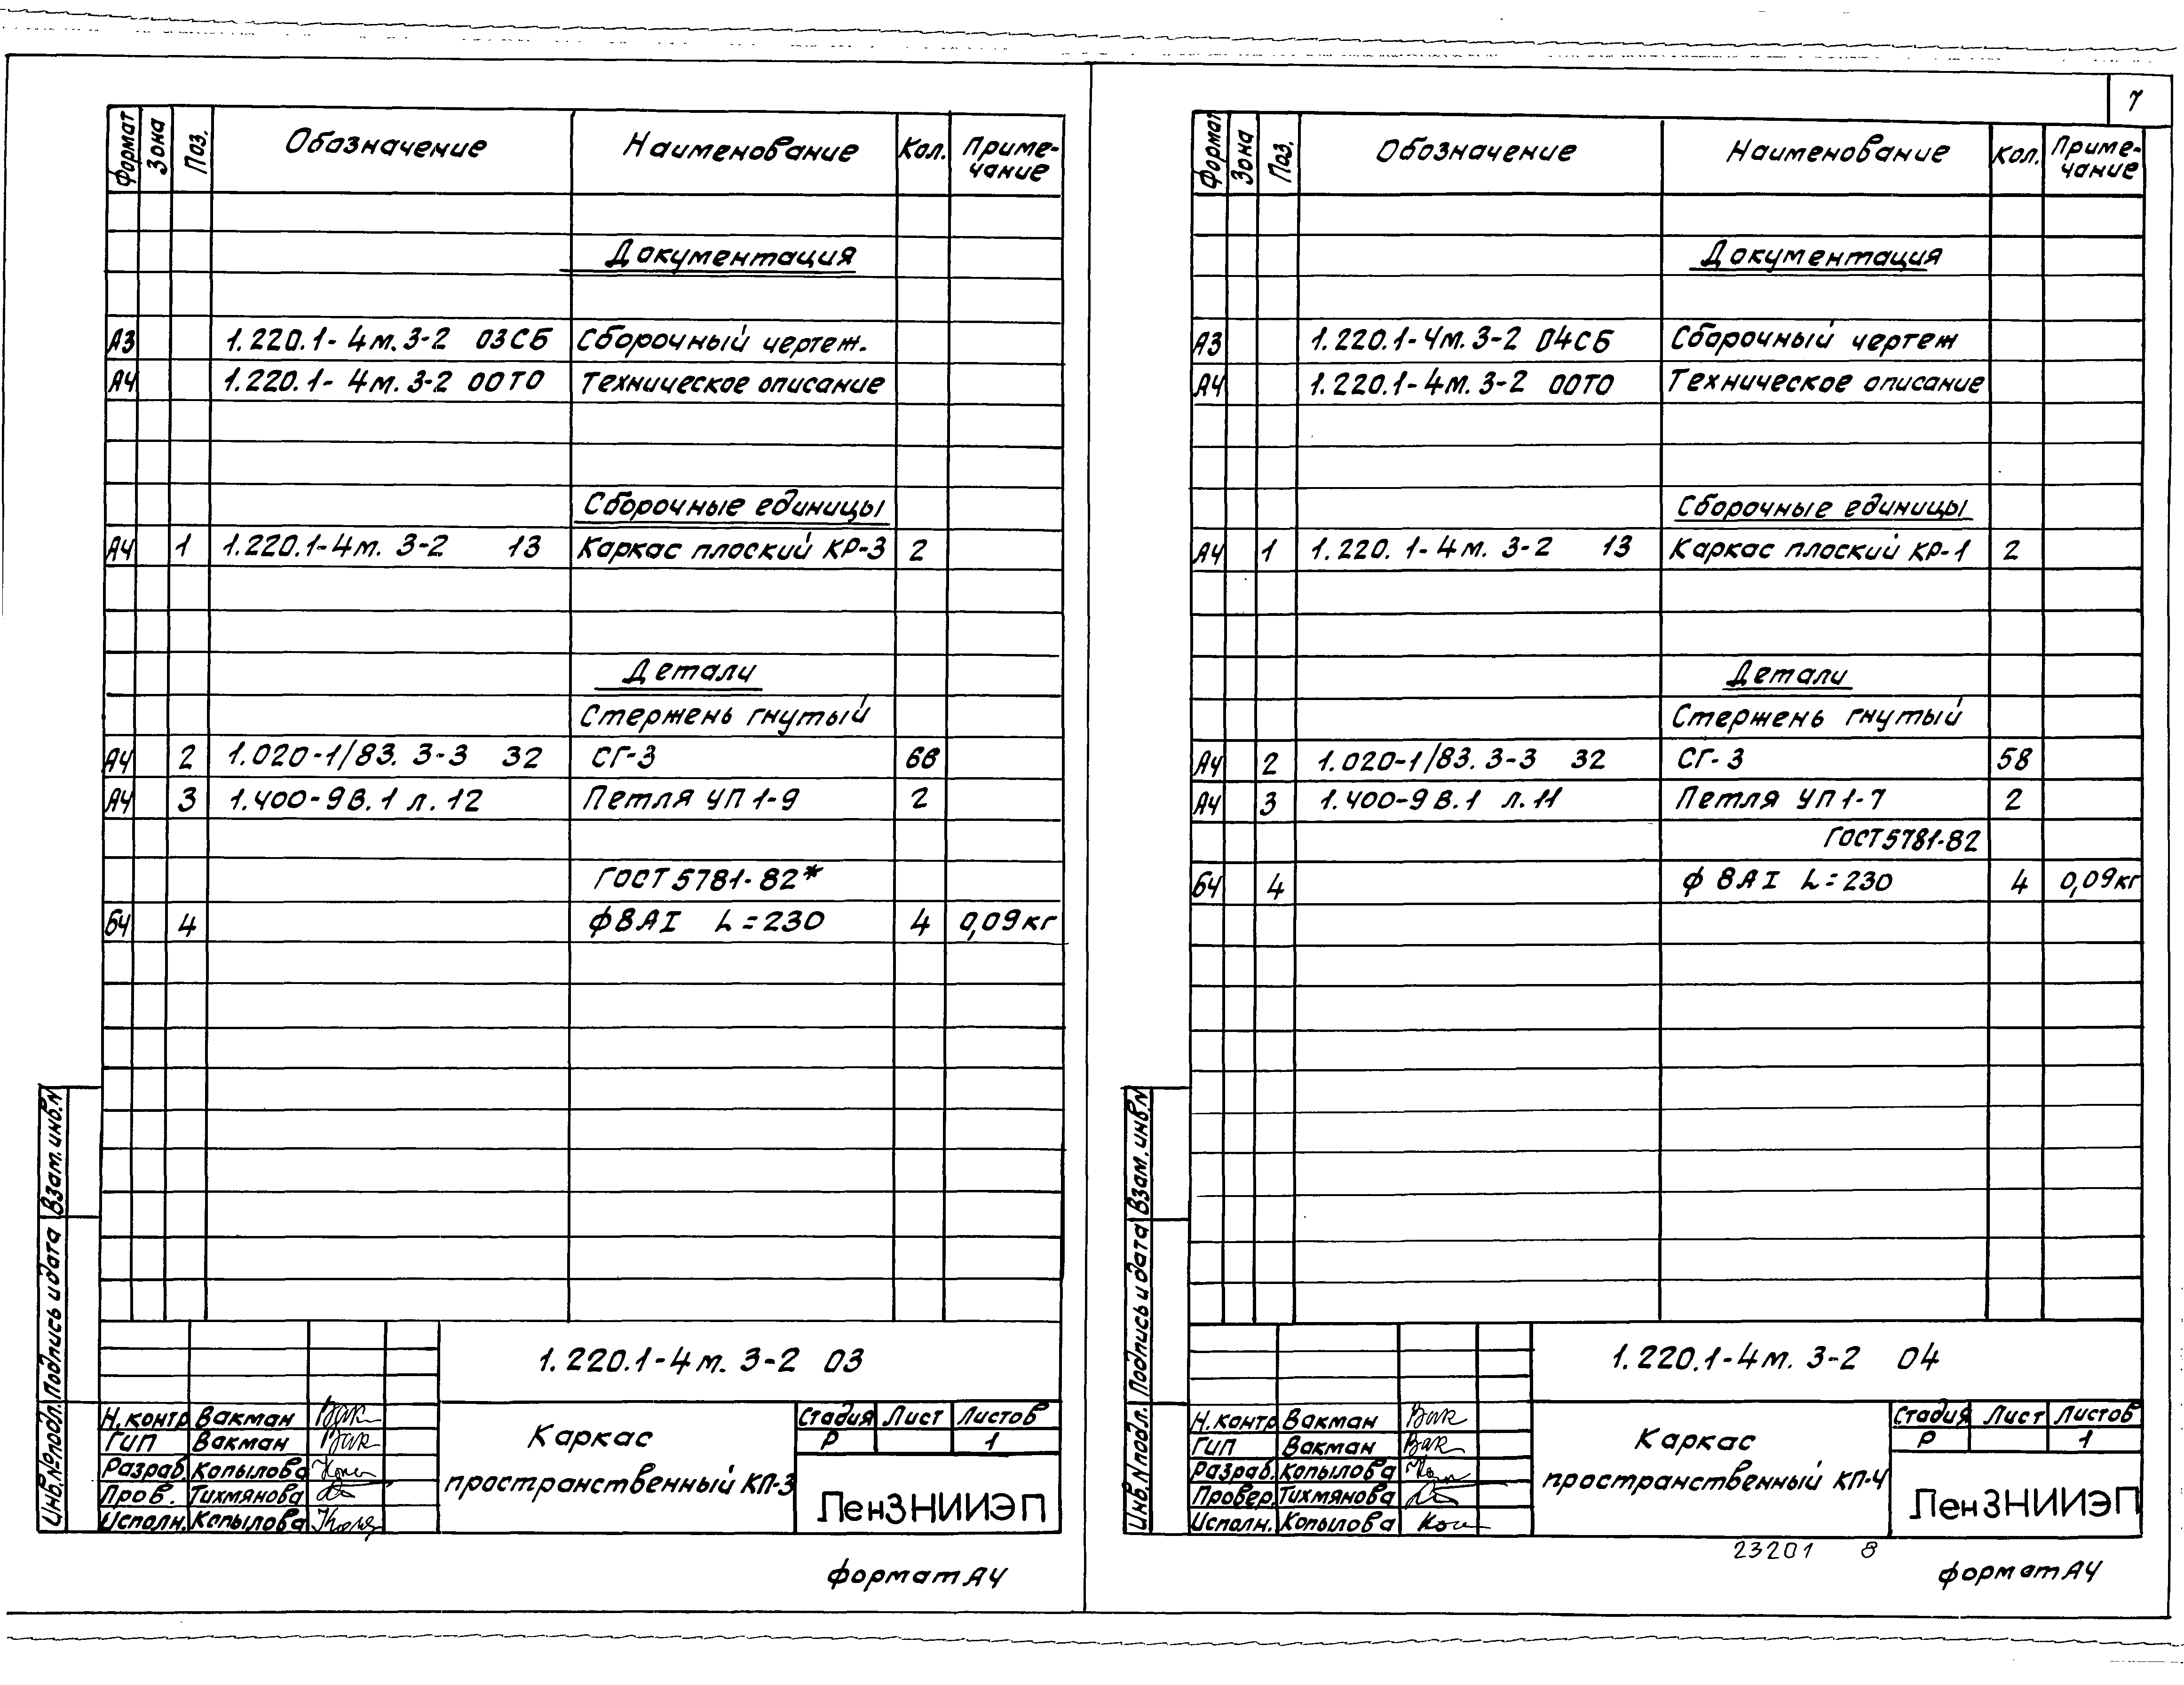 7
Формат Зона Поз. Обозначение Наименование Кол. Приме-
чание
Документация
А3 1.220.1-4м.3-2 03СБ Сборочный чертеж.
А4 1.220.1-4м.3-2 00ТО Техническое описание
Сборочные единицы
А4 1 1.220.1-4м. 3-2 13 Каркас плоский КР-3 2
Детали
Стержень гнутый
А4 2 1.020-1/83. 3-3 32 СГ-3 68
А4 3 1.400-9 В.1 л.12 Петля УП 1-9 2
ГОСТ 5781-82*
БЧ 4 ф8АI L=230 4 0,09кг
Взам. инв.N
Подпись и дата
Инв.№подл.
1.220.1-4м. 3-2 03
Н.контр Вакман
ГИП Вакман
Разраб. Копылова
Пров. Тихмянова
Исполн. Копылова
Каркас
пространственный КП-3
Стадия Лист Листов
Р 1
ЛенЗНИИЭП
формат А4
Формат Зона Поз. Обозначение Наименование Кол. Приме-
чание
Документация
А3 1.220.1-4м.3-2 04СБ Сборочный чертеж
А4 1.220.1-4м.3-2 00ТО Техническое описание
Сборочные единицы
А4 1 1.220.1-4м. 3-2 13 Каркас плоский КР-1 2
Детали
Стержень гнутый
А4 2 1.020-1/83. 3-3 32 СГ-3 58
А4 3 1.400-9 В.1 л.11 Петля УП 1-7 2
ГОСТ 5781-82
БЧ 4 ф 8АI L=230 4 0,09кг
Взам. инв.N
Подпись и дата
Инв.Nподл.
1.220.1-4м. 3-2 04
Н.контр Вакман
ГИП Вакман
Разраб. Копылова
Провер. Тихмянова
Исполн. Копылова
Каркас
пространственный КП-4
Стадия Лист Листов
Р 1
ЛенЗНИИЭП
23201 8
формат А4